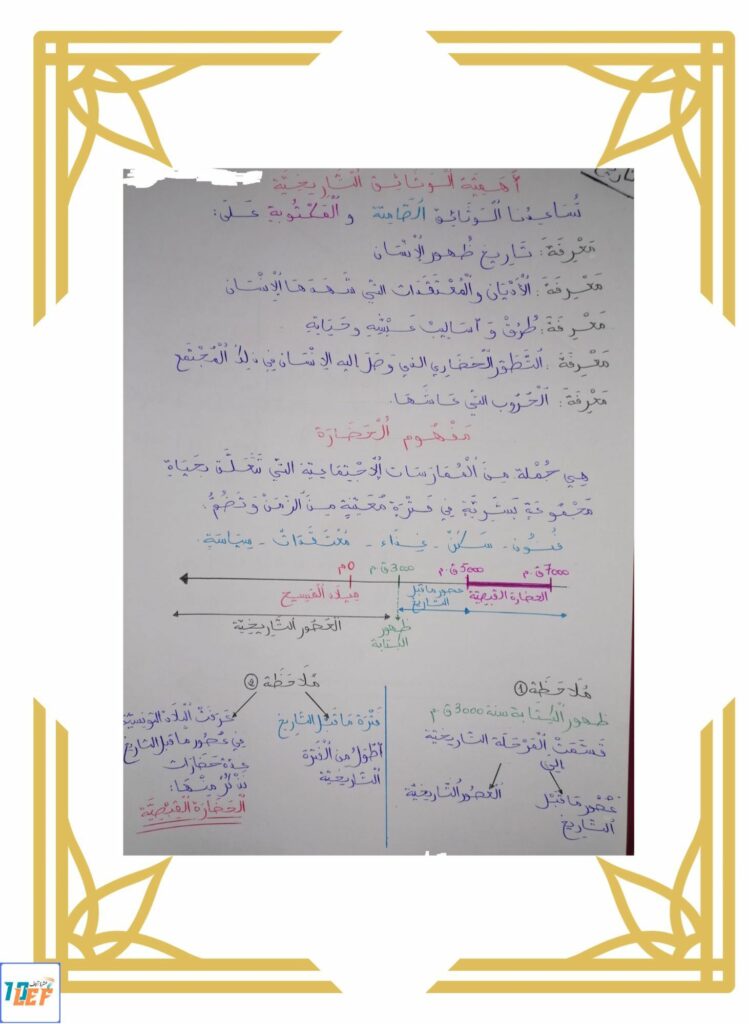 أَهَمِيَّة الْوَثَائِق التَّارِيخِيَّة
تُسَاعِدُنَا الْوَثَائِق الصَّامِتَة و الْمَكْتُوبَة عَلَى:
مَعْرِفَة: تَارِيخ ظُهُور الْإِنْسَان
مَعْرِفَة: الْأَدْيَان والْمُعْتَقَدَات التي شَهِدَهَا الْإِنْسَان
مَعْرِفَة: طُرُق وَ أَسَالِيب عَيْشِهِ وحَيَاتِهِ
مَعْرِفَة: التَّطَوُّر الْحَضَارِي الذي وَصَلَ اليه الإنْسَان في ذلك الْمُجْتَمَع
مَعْرِفَة: الْحُرُوب التي عَاشَهَا.
مَفْهُوم الْحَضَارَة
هِيَ جُمْلَة مِنَ الْمُمَارَسَات الْاجْتِمَاعِيَة التي تَتَعَلَّق بحَيَاةِ
مَجْمُوعَةٍ بَشَرِيَّةٍ فِي فَتْرَةٍ مُعَيَّنَةٍ مِنَ الزَّمَنِ وَتَضُمُّ:
فُنُون - سَكَنٌ - غِذَاء - مُعْتَقَدَاتٌ - سِيَاسَةِ.
7000 ق.م
5000 ق.م
3000 ق.م
0 م
الحَضَارَة القَبْصِيَّة
عصور ما قبل التاريخ
مِيلَاد الْمَسِيح
ظهور الكتابة
العُصُور التَّارِيخِيَّة
مُلَاحَظَة 1
ظهور الْكِتَابَة سنة 3000 ق.م
قَسَّمَتْ الْمَرْحَلَة التَّارِيخِيَّة
إلى
عُصُور مَا قَبْل التَّارِيخ
العُصُور التَّارِيخِيَّة
مُلَاحَظَة 2
فَتْرَة مَا قَبْل التَّارِيخ
أَطْوَل مِن الْفَتْرَة
التَّارِيخِيَّة
عَرَفَتْ الْبِلَاد التونسية
في عُصُور مَا قَبْل التَّارِيخ
عِدَّة حَضَارَات
نَذْكُرُ مِنْهَا:
الْحَضَارَة الْقَبْصِيَّة